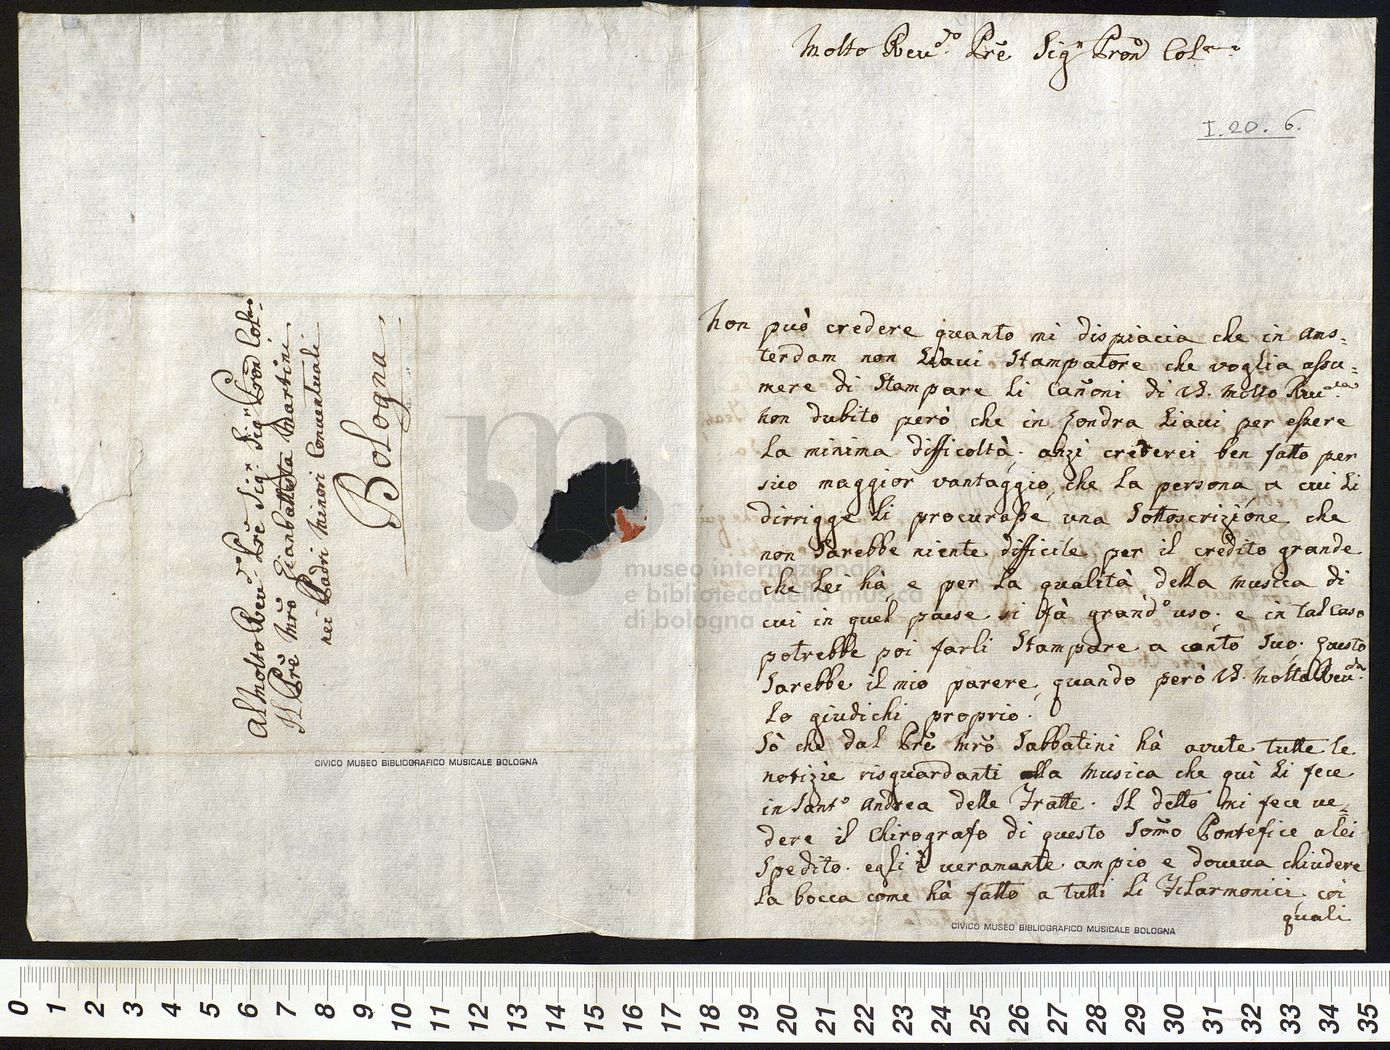 Al Molto Rev.do Pre Sig.r Sig.r Pron Col.mo
Il Pre Mro Gianbattista Martini
nei Padri Minori Conventuali
Bologna
CIVICO MUSEO BIBLIOGRAFICO MUSICALE BOLOGNA
Molto Rev.do Pre Sig.r Pron Col.mo
I. 20. 6.
Non può credere quanto mi dispiacia che in Ams=
terdam non Liavi Stampatore che voglia assu=
mere di Stampare Li Canoni di V.S. Molto Rev.da
Non dubito però che in Londra Liavi per essere
La minima difficoltà; anzi crederei ben fatto per
suo maggior vantaggio, che La persona a cui Li
dirrigge Li procurasse una Sottoscrizione che
non Sarebbe niente difficile per il credito grande
che Lei hà, e per La qualità della musica di
cui in quel paese si fà grand.o uso; e in tal caso
potrebbe poi farli Stampare a conto Suo. Questo
Sarebbe il mio parere, quando però V.S. Molto Rev.da
Lo giudichi proprio.
Sò che dal Pre Mro Sabbatini hà avute tutte le
notizie risguardanti alla Musica che quì Si fece
in Sant.o Andrea delle Fratte. Il detto mi fece ve=
dere il Chirografo di questo Somo Pontefice a lei
Spedito. egli è veramante ampio e doveva chiudere
La bocca come hà fatto a tutti Li Filarmonici, coi
quali
CIVICO MUSEO BIBLIOGRAFICO MUSICALE BOLOGNA
museo internazionale
e biblioteca della musica
di bologna
0 1 2 3 4 5 6 7 8 9 10 11 12 13 14 15 16 17 18 19 20 21 22 23 24 25 26 27 28 29 30 31 32 33 34 35